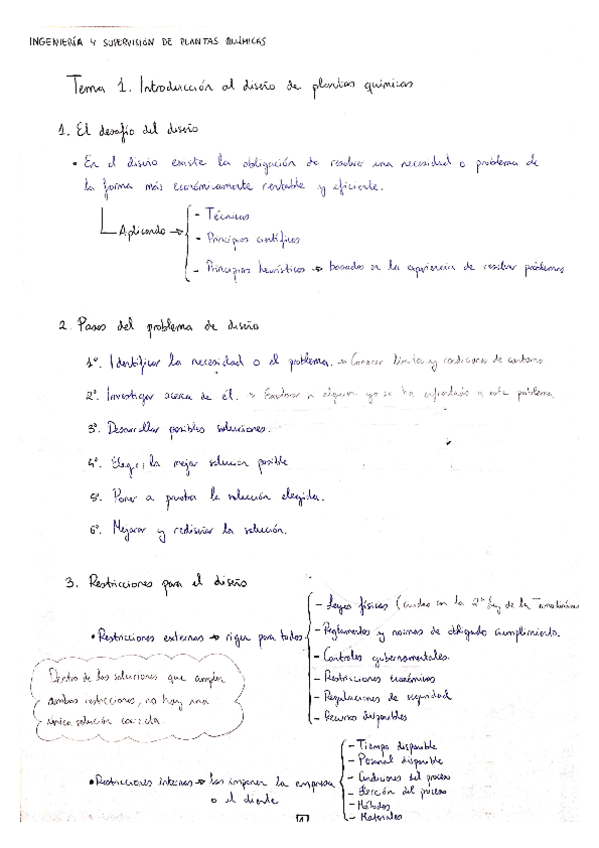 INGENIERÍA Y SUPERVISIÓN DE PLANTAS QUÍMICAS
Tema 1. Introducción al diseño de plantas químicas
1. El desafío del diseño
• En el diseño existe la obligación de resolver una necesidad o problema de
la forma más económicamente rentable y eficiente.
Aplicando → - Técnicas
- Principios científicos
- Principios heurísticos → basados en la experiencia de resolver problemas
2. Pasos del problema de diseño
1º. Identificar la necesidad o el problema. → Conocer límites y condiciones de contorno
2º. Investigar acerca de él. → Explorar si alguien ya se ha enfrentado a este problema
3º. Desarrollar posibles soluciones.
4º. Elegir la mejor solución posible
5º. Poner a prueba la solución elegida.
6º. Mejorar y rediseñar la solución.
3. Restricciones para el diseño
• Restricciones externas → rigen para todos
- Leyes físicas (cuidado con la 2ª Ley de la Termodinámica
- Reglamentos y normas de obligado cumplimiento.
- Controles gubernamentales.
- Restricciones económicas
- Regulaciones de seguridad
- Recursos disponibles
Dentro de las soluciones que cumplen
ambas restricciones, no hay una
única solución correcta
• Restricciones internas → las imponen la empresa
o el cliente
- Tiempo disponible
- Personal disponible
- Condiciones del proceso
- Elección del proceso
- Métodos
- Materiales
1